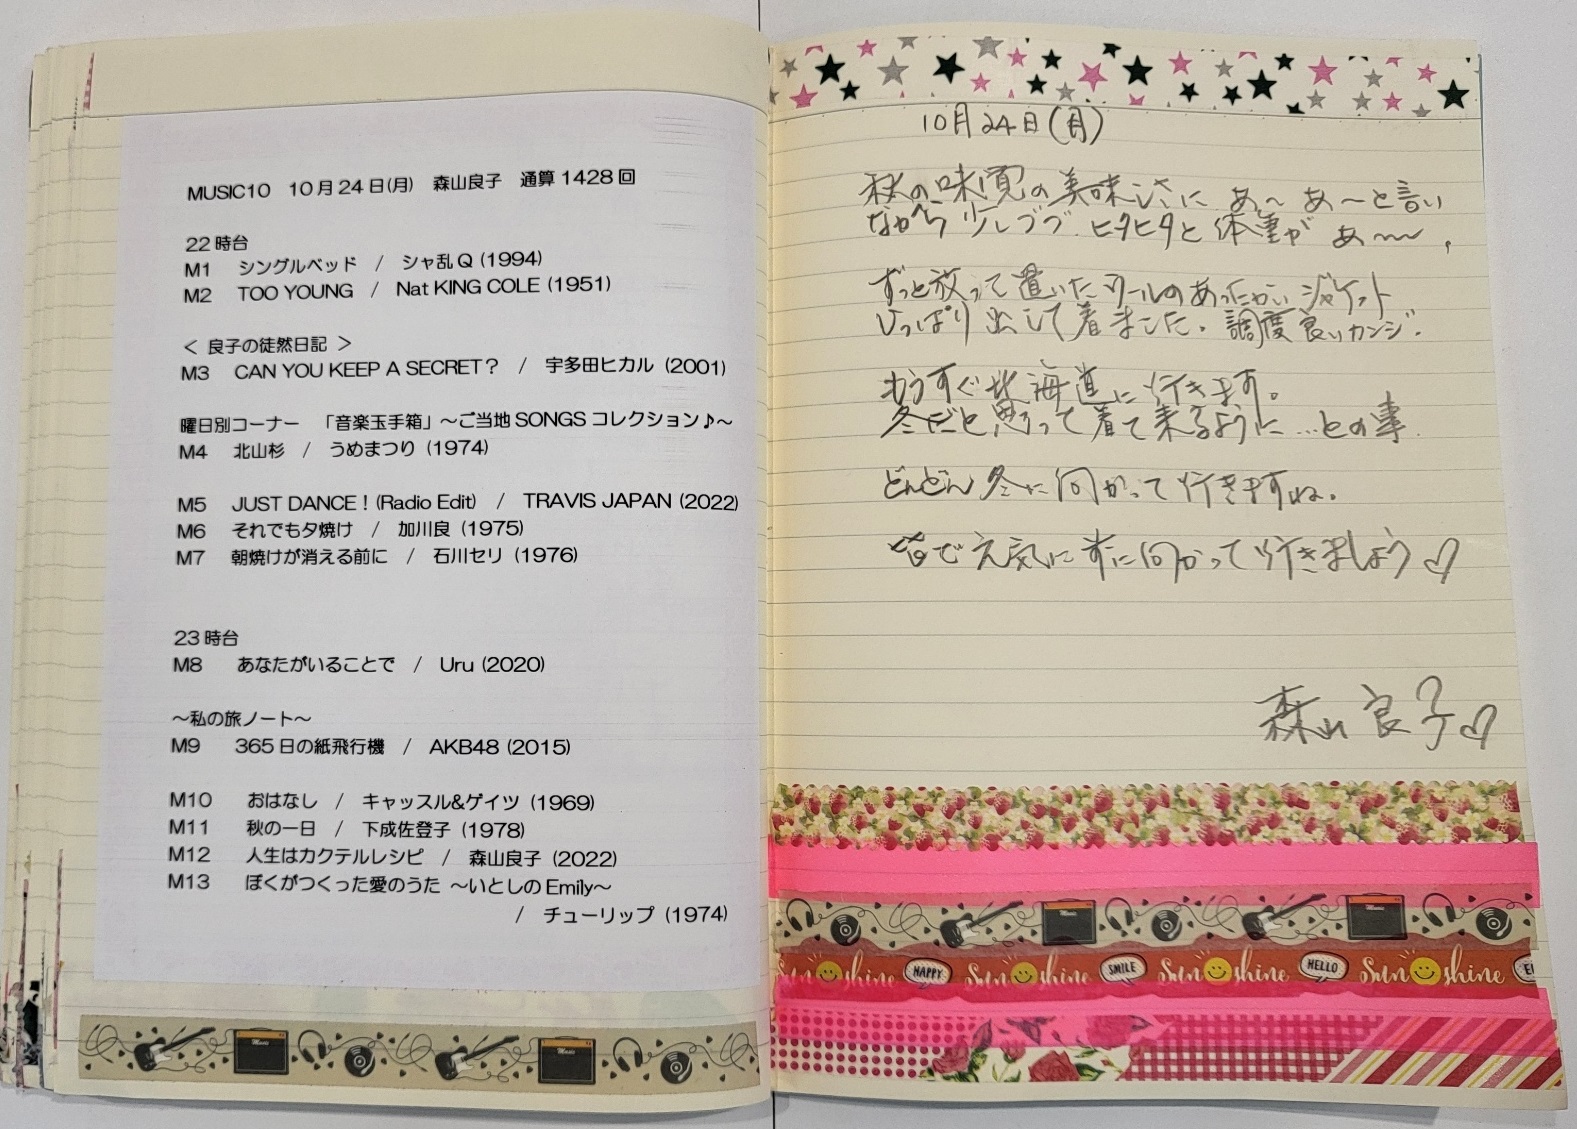 MUSIC10 10月24日(月) 森山良子 通算1428回
22時台
M1 シングルベッド / シャ乱Q (1994)
M2 TOO YOUNG / Nat KING COLE (1951)
＜ 良子の徒然日記 ＞
M3 CAN YOU KEEP A SECRET? / 宇多田ヒカル (2001)
曜日別コーナー 「音楽玉手箱」～ご当地SONGSコレクション♪～
M4 北山杉 / うめまつり (1974)
M5 JUST DANCE！(Radio Edit) / TRAVIS JAPAN (2022)
M6 それでも夕焼け / 加川良 (1975)
M7 朝焼けが消える前に / 石川セリ (1976)
23時台
M8 あなたがいることで / Uru (2020)
～私の旅ノート～
M9 365日の紙飛行機 / AKB48 (2015)
M10 おはなし / キャッスル&ゲイツ (1969)
M11 秋の一日 / 下成佐登子 (1978)
M12 人生はカクテルレシピ / 森山良子 (2022)
M13 ぼくがつくった愛のうた ～いとしのEmily～
/ チューリップ (1974)
Music
Music
10月24日(月)
秋の味覚の美味しさに あ～ あ～と言い
ながら 少しづつ ヒタヒタと 体重が あ～～、
ずっと放って置いた ウールのあったかい ジャケット
ひっぱり出して着ました。調度良いカンジ。
もうすぐ北海道に行きます。
冬だと思って着て来るように…との事
どんどん冬に向かって行きますね。
皆で元気に 冬に向かって行きましょう♡
森山良子♡
Music
Music
Sunshine HAPPY Sunshine SMILE Sunshine HELLO Sunshine